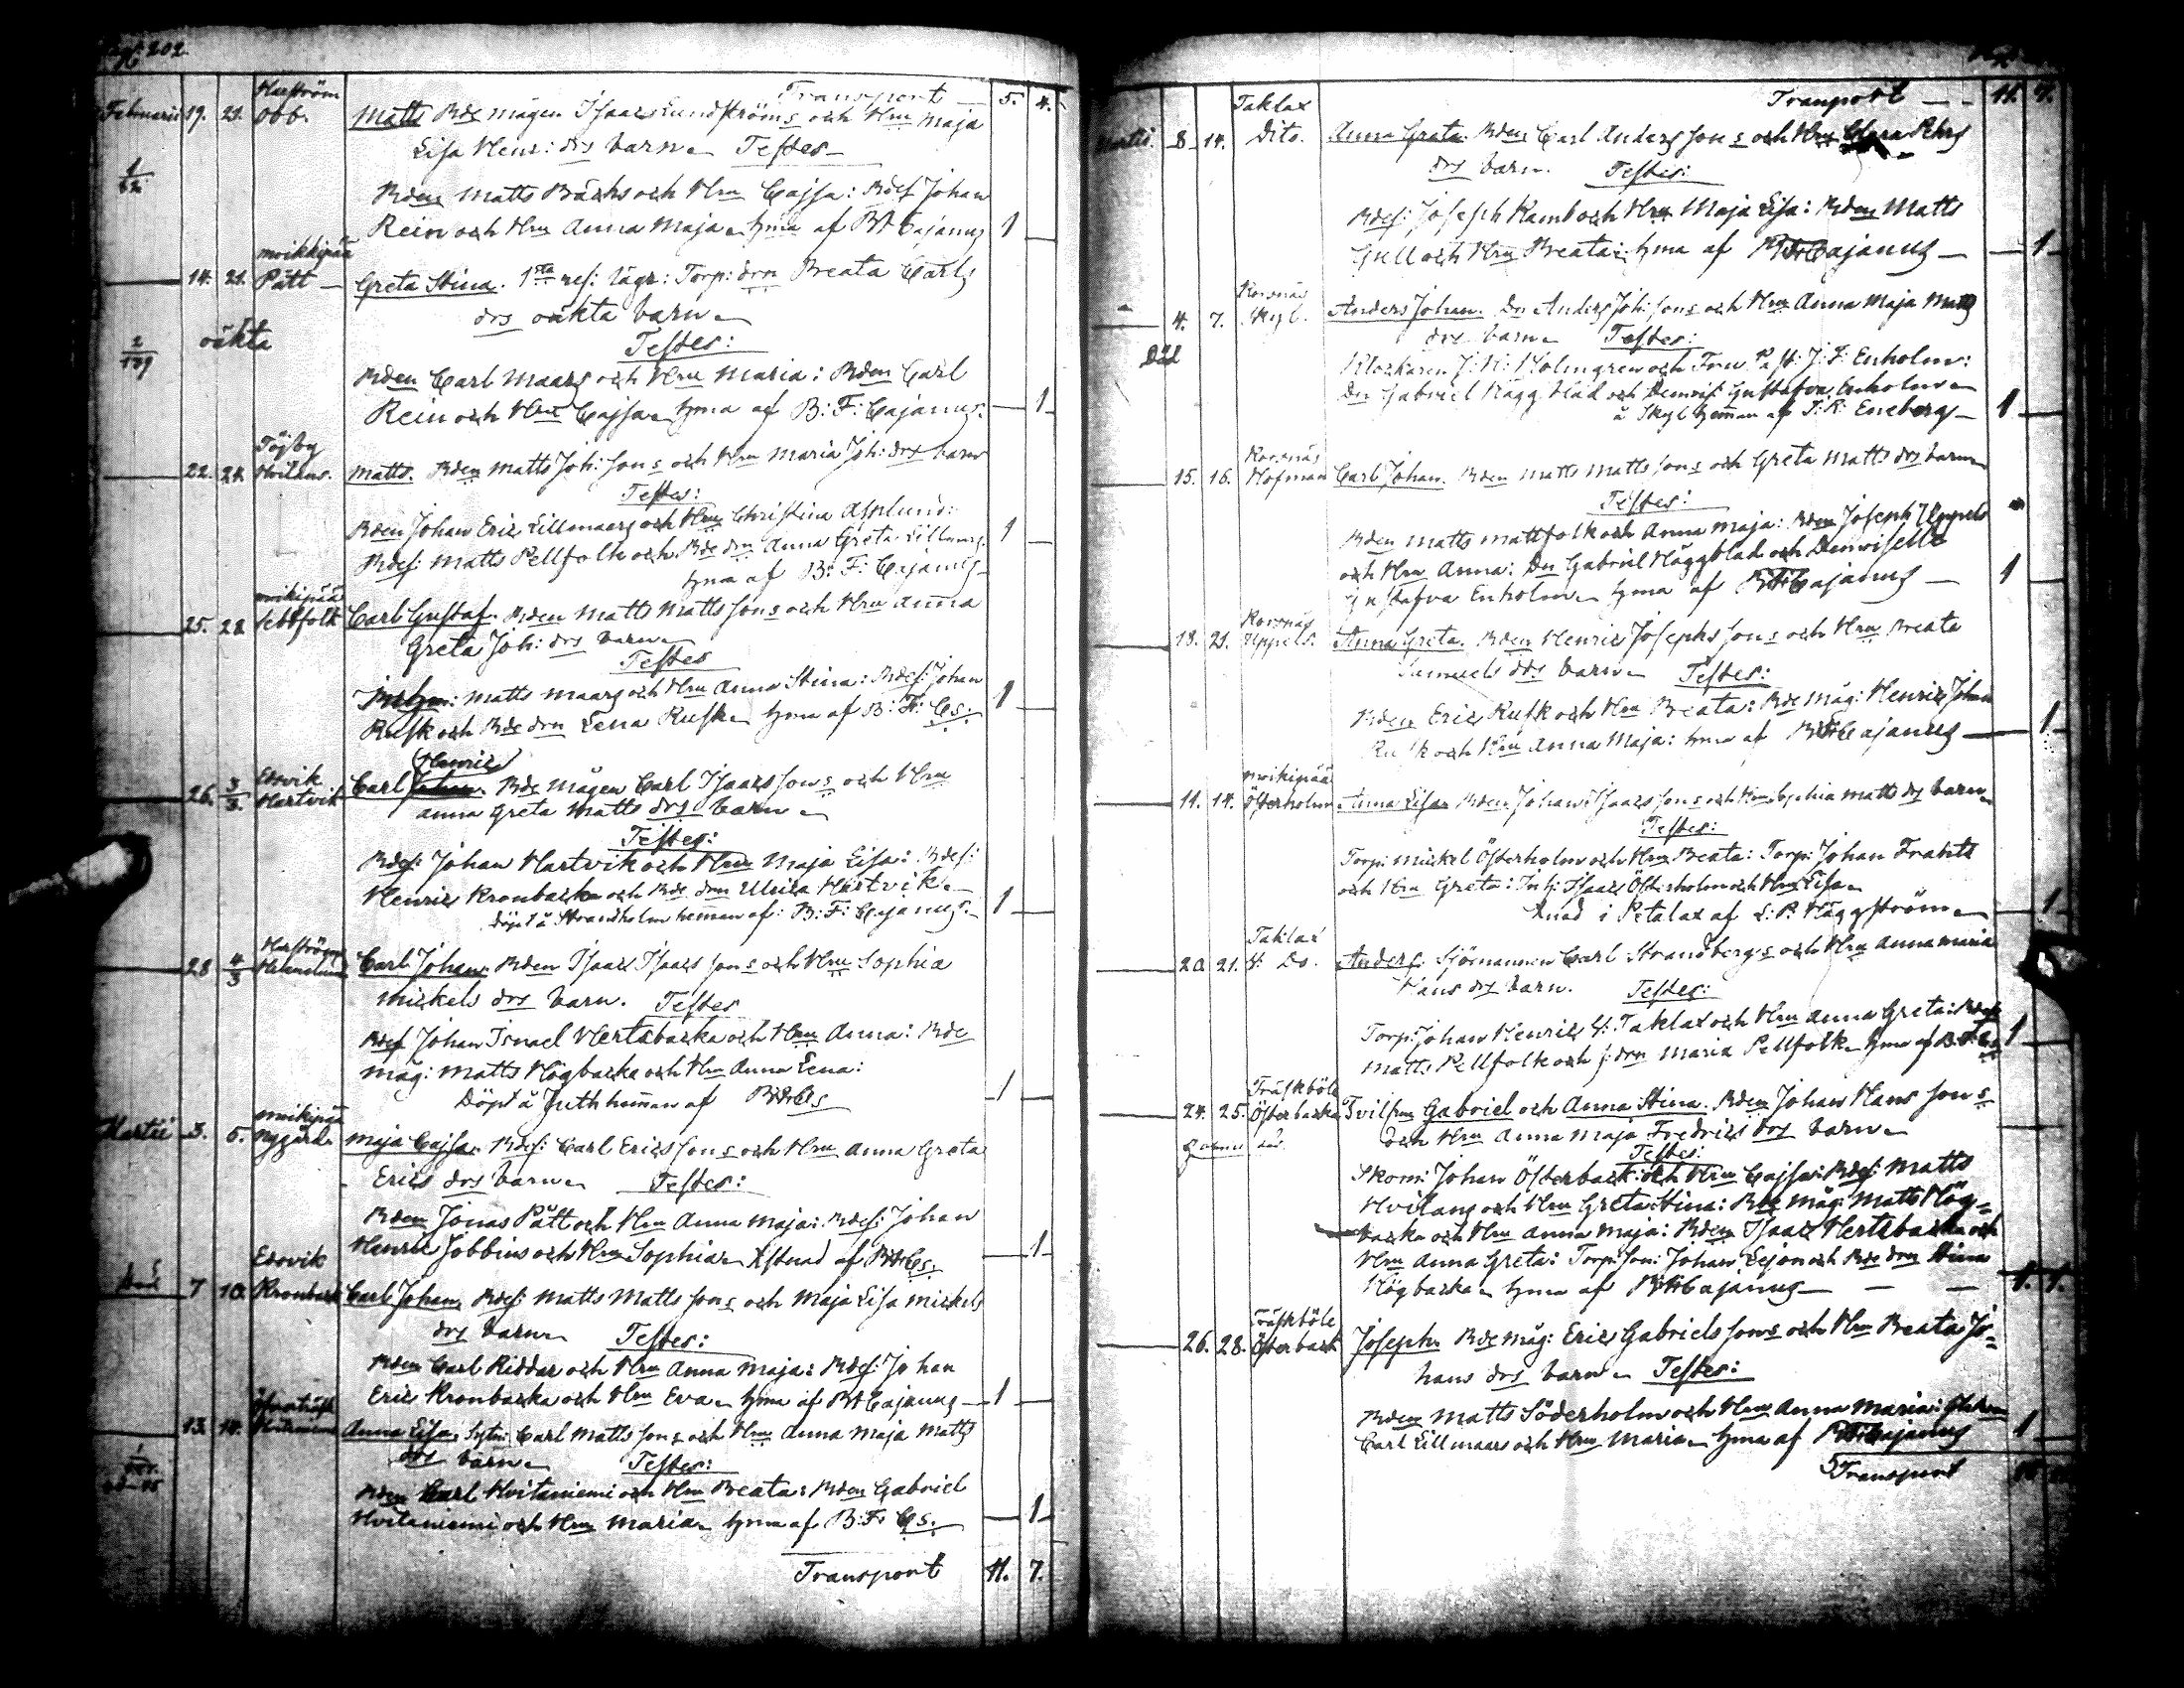 202
Transport 5. 4.
Februarii 19. 21. Obb. Matts Bde mågen Isaac Lundströms och Hru Maja
Lisa Henr: drs barn Testes
Bden Matts Bäcks och Hru Cajsa: Bdes: Johan
Rein och Hru Anna Maja hma af BF Cajanus 1
14. 21. Pått Greta Stina. 1sta res: lägr: Torp: drn Beata Carls
drs oäkta barn
oäkta
Testes:
Bden Carl Maars och Hru Maria: Bden Carl
Rein och Hru Cajsa hma af B: F: Cajanus. 1
Töjby
22. 24. Matts. Bden Matts Joh: sons och Hru Maria Joh: drs barn
Testes:
Bden Johan Eric Lillmaars och Hru Christina Asplund:
Bdes: Matts Pellfolk och Bde drn Anna Greta Lillmars. 1
hma af B: F: Cajanus
25. 28. Carl Gustaf. Bden Matts Matts sons och Hru Anna
Greta Joh: drs barn
Testes
Matts Maars och Hru Anna Stina: Bdes: Johan
Rusk och Bde drn Lena Rusk hma af B: F: Cs. 1
Henric
Edsvik
26. 3/3. Hartvik Carl Johan. Bde mågen Carl Isaacs sons och Hru
Anna Greta Matts drs barn
Testes:
Bdes: Johan Hartvik och Hru Maja Lisa: Bdes:
Henric Kronbacka och Bde drn Ulrica Hartvik.
Döpt å Strandholm hemman af: B: F: Cajanus. 1
28 4/3 Carl Johan. Bden Isaac Isaacs sons och Hru Sophia
Mickels drs barn. Testes
Bdes Johan Israel Hertsbacka och Hru Anna: Bde
måg: Matts Högbacka och Hru Anna Lena:
Döpt å Juth hemman af BFCs 1
Martii 3. 5. Nygård Maja Cajsa. Bdes: Carl Erics sons och Hru Anna Greta
Erics drs barn Testes:
Bden Jonas Pått och Hru Anna Maja: Bdes: Johan
Henric Jobbins och Hru Sophia af BFCs. 1
Edsvik
7 10. Kronback Carl Johan. Bdes: Matts Matts sons och Maja Lisa Mickels
drs barn Testes:
Bden Carl Riddar och Hru Anna Maja: Bdes: Johan
Eric Kronbacka och Hru Eva hma af BF Cajanus 1
13. 14. Anna Lisa. Carl Matts sons och Hru Anna Maja Matts
drs barn Testes:
Bden Carl Hvitaniemi och Hru Beata: Bden Gabriel
Hvitaniemi och Hru Maria hma af B: F: Cs. 1
Transport 11. 7.
Transport 11. 7.
Taklax
Martii. 8 14. Dito. Anna Greta. Bden Carl Anders sons och Hru Clara Pehrs
drs barn. Testes:
Bdes: Joseph Kamb och Hru Maja Lisa: Bden Matts
Gull och Hru Beata: hma af BF Cajanus 1
Korsnäs
4. 7. Skyl. Anders Johan. Dn Anders Joh: sons och Hru Anna Maja Matts
drs barn Testes:
Död
Klockaren J: H: Holmgren och Fru J: F: Enholm:
Dn Gabriel Häggblad och Demois: Gustafva Enholm
å Skyl hemman af J: R: Eneberg 1
Korsnäs
15. 16. Hofman Carl Johan. Bden Matts Matts sons och Greta Matts drs barn
Testes:
Bden Matts Mattfolk och Anna Maja: Bden Joseph Uppels
och Hru Anna: Dn Gabriel Häggblad och Demoiselle
Gustafva Enholm hma af BF Cajanus 1
Korsnäs
18. 21. Uppels. Anna Greta. Bden Henric Josephs sons och Hru Beata
Samuels drs barn Testes:
Bden Eric Rusk och Hru Beata: Bde måg: Henric Johan
Rusk och Hru Anna Maja: hma af BF Cajanus 1
11. 14. Österholm Anna Lisa. Bden Johan Isaacs sons och Hru Sophia Matts drs barn
Testes:
Torp: Mickel Österholm och Hru Beata: Torp: Johan Frants
och Hru Greta: Inh: Isaac Österholm och Hru Lisa
i Petalax af L: P: Häggström 1
Taklax
20. 21. Do. Anders. Sjömannen Carl Strandbergs och Hru Anna Maria
Hans drs barn. Testes:
Torp: Johan Henric Taklax och Hru Anna Greta: Bdes
Matts Pellfolk och drn Maria Pellfolk hma af B: F: Cs 1
Träskböle
24. 25. Österbacka Tvill: Gabriel och Anna Stina. Bden Johan Hans sons
och Hru Anna Maja Fredrics drs barn
Testes:
Skom: Johan Österback och Hru Cajsa: Bdes: Matts
Hvitans och Hru Greta Stina: Bde måg: Matts Hög=
backa och Hru Anna Maja: Bden Isaac Hertsbacka och
Hru Anna Greta: Torp: son: Johan Lejon och Bde drn Stina
Högbacka hma af BF Cajanus 1. 1.
Träskböle
26. 28. Österback Joseph. Bde måg: Eric Gabriels sons och Hru Beata Jo=
hans drs barn Testes:
Bden Matts Söderholm och Hru Anna Maria:
Carl Lillmaars och Hru Maria hma af BF Cajanus 1
Transport